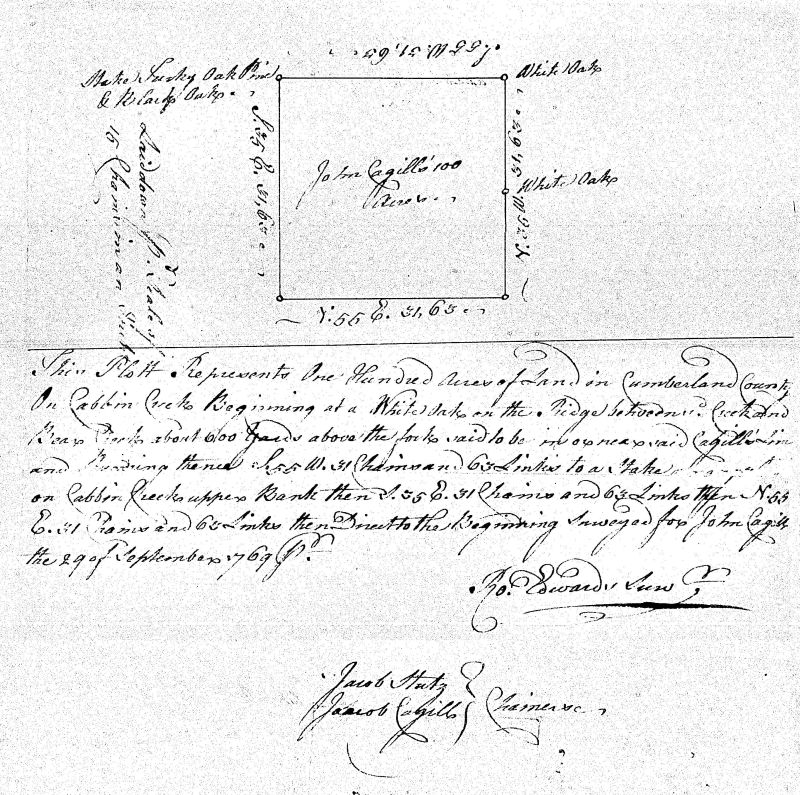 S. 55 W. 31, 63
Stake Turky Oak Pine
& Black Oak
White Oak
S. 35 E. 31, 63
John Cagill's 100
Acres
N. 36 W. 31, 63
White Oak
Laiddown Stake
15 Chains in an Inch
N. 55 E. 31, 63
This Plott Represents One Hundred Acres of Land in Cumberland County
On Cabbin Creek Beginning at a White Oak on the Ridge between sd. Creek and
Bear Creek about 600 Yards above the fork said to be in or near said Cagill's Line
and Running thence S. 55 W. 31 Chains and 63 Links to a Stake
on Cabbin Creeks upper Bank then S. 35 E. 31 Chains and 63 Links then N. 55
E. 31 Chains and 63 Links then Direct to the Beginning Surveyed for John Cagill
the 29 of September 1769 Pr.
Ro. Edwards Surv r
Jacob Stutz
Jacob Cagill Chainers